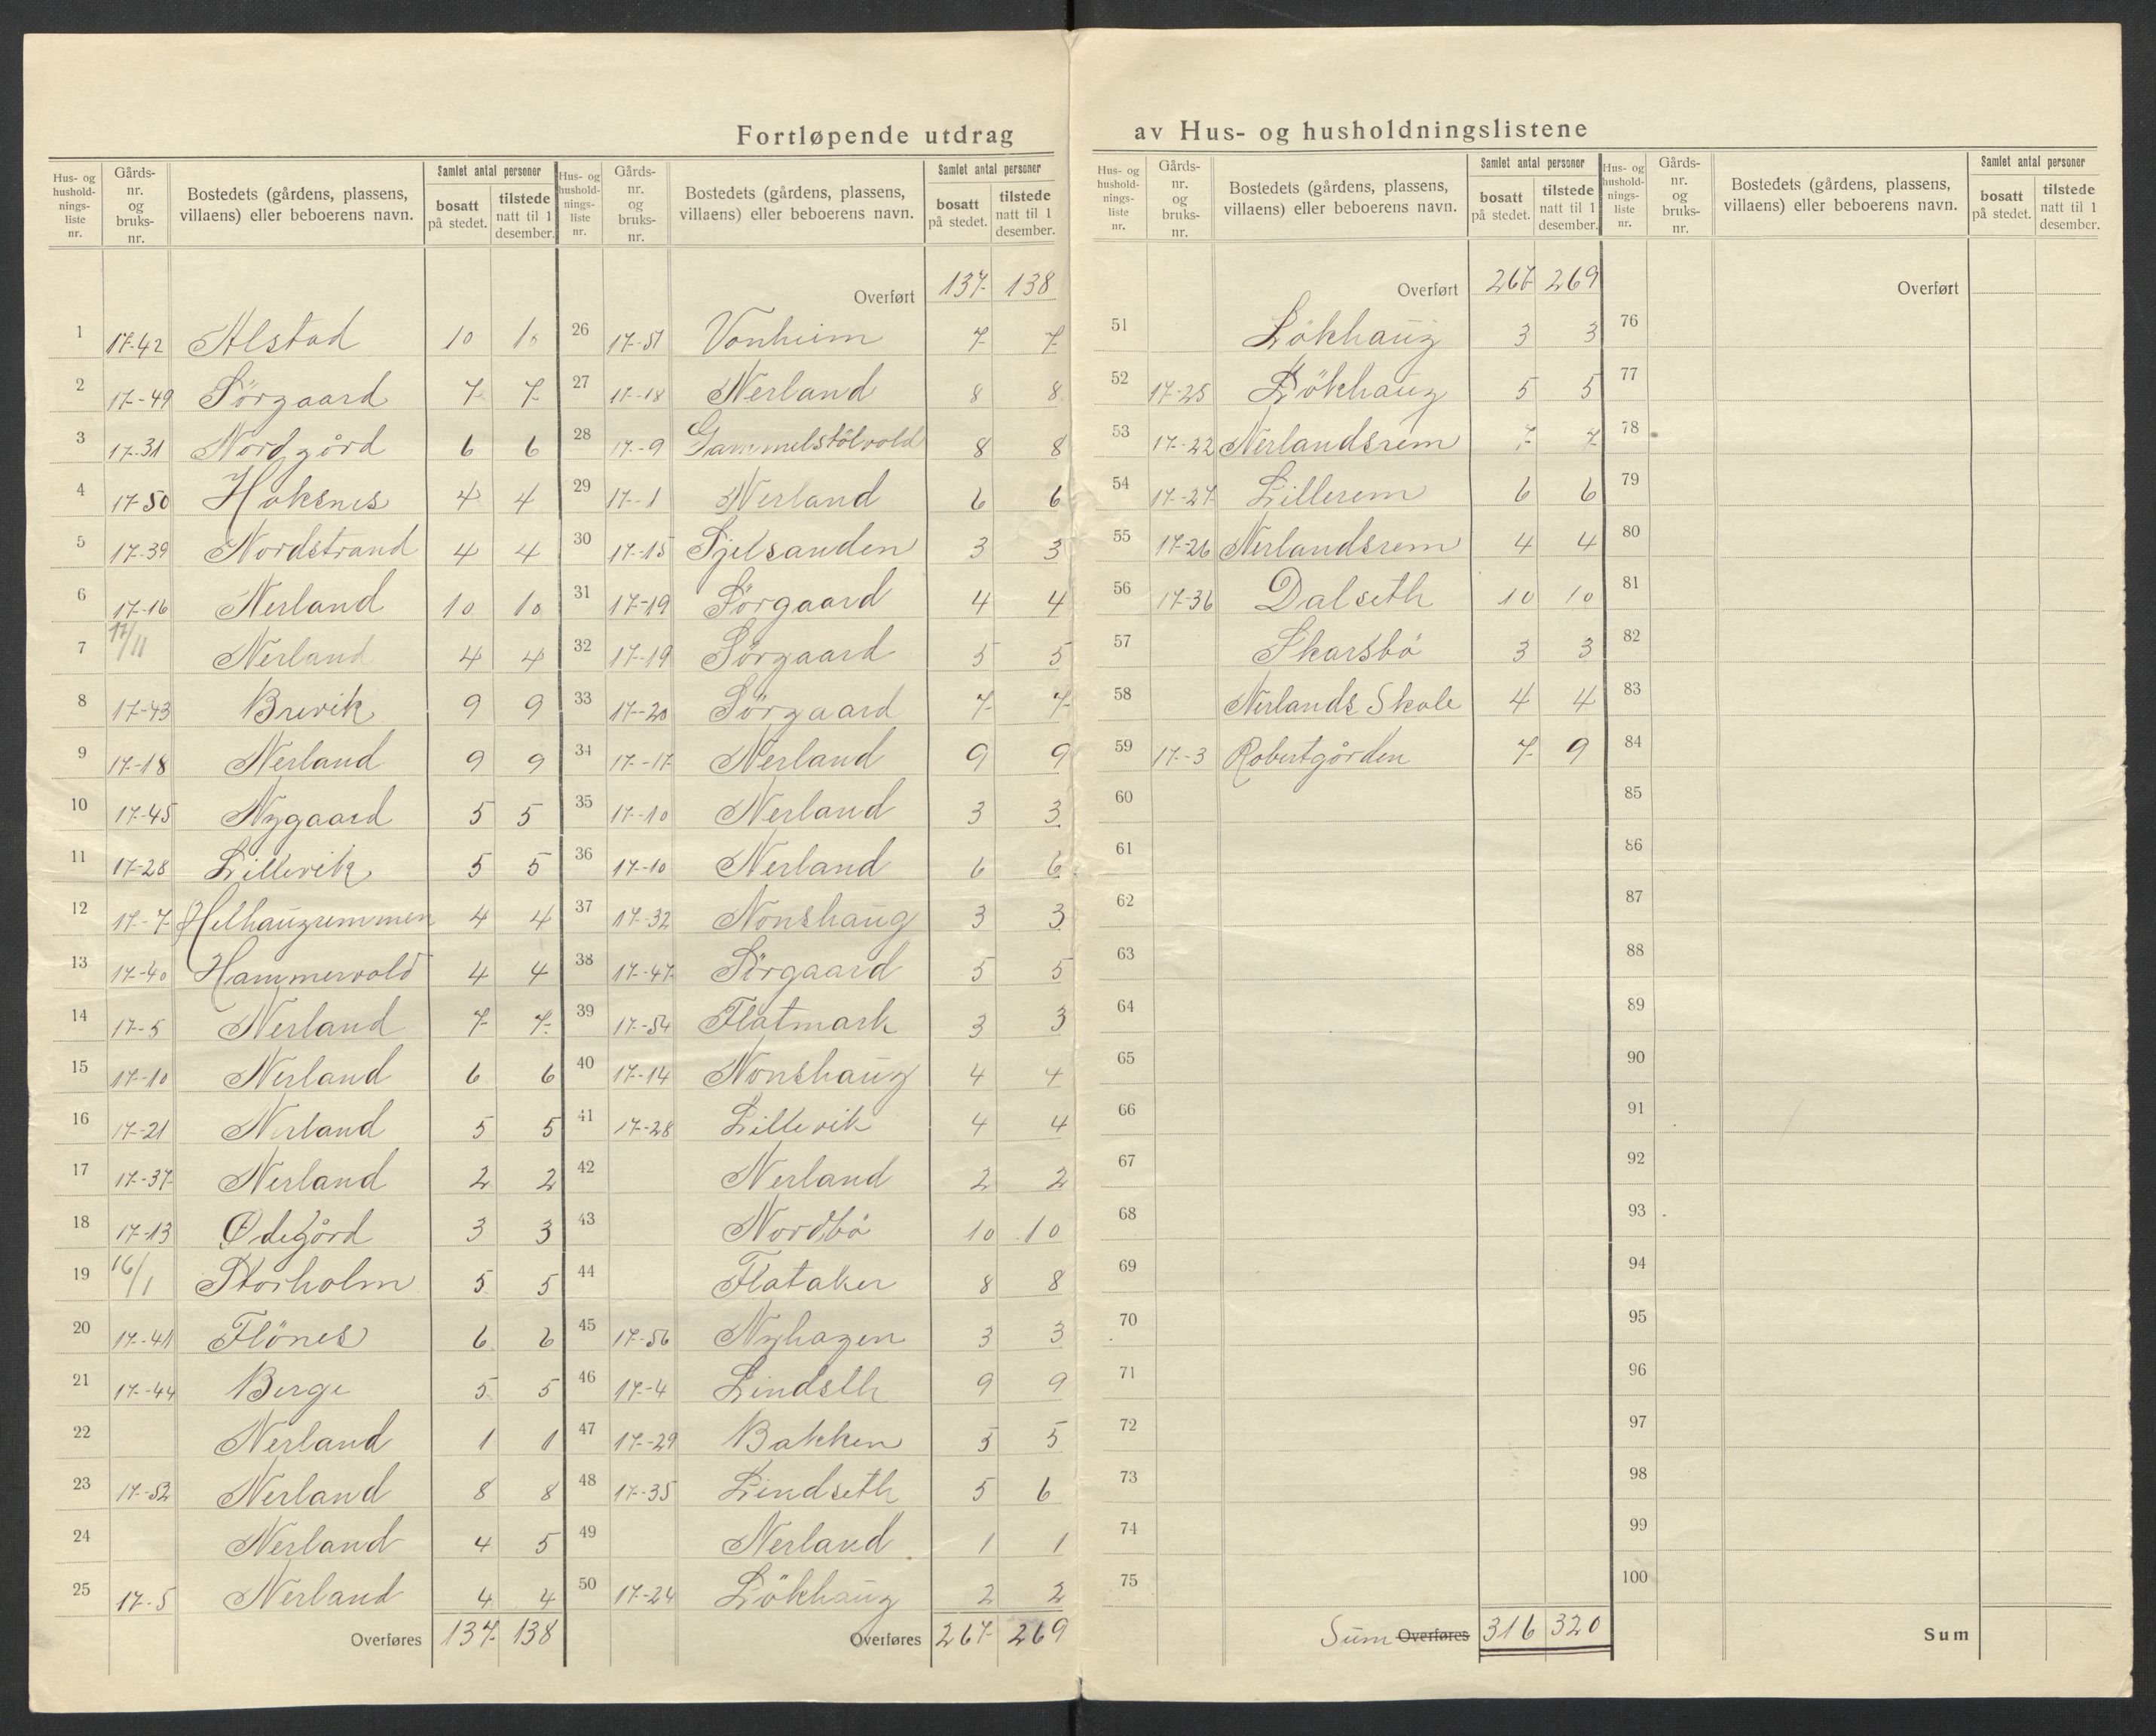 Fortløpende utdrag av Hus- og husholdningslistene
Hus- og husholdnings-liste nr. | Gårds-nr. og bruks-nr. | Bostedets (gårdens, plassens, villaens) eller beboerens navn. | Samlet antal personer | bosatt på stedet. | tilstede natt til 1 desember.
1 17-42 Alstad 10 10
2 17-49 Sörgaard 7 7
3 17-31 Nordgård 6 6
4 17-50 Haksnes 4 4
5 17-39 Nordstrand 4 4
6 17-16 Nerland 10 10
7 17/11 Nerland 4 4
8 17-43 Brevik 9 9
9 17-18 Nerland 9 9
10 17-45 Nygaard 5 5
11 17-28 Lillevik 5 5
12 17-7 Helhaugremmen 4 4
13 17-40 Hammervold 4 4
14 17-5 Nerland 7 7
15 17-10 Nerland 6 6
16 17-21 Nerland 5 5
17 17-37 Nerland 2 2
18 17-13 Ødegård 3 3
19 16/1 Storholm 5 5
20 17-41 Flönes 6 6
21 17-44 Berge 5 5
22 Nerland 1 1
23 17-52 Nerland 8 8
24 Nerland 4 5
25 17-5 Nerland 4 4
Overføres 137 138
Hus- og husholdnings-liste nr. | Gårds-nr. og bruks-nr. | Bostedets (gårdens, plassens, villaens) eller beboerens navn. | Samlet antal personer | bosatt på stedet. | tilstede natt til 1 desember.
Overført 137 138
26 17-51 Vonheim 7 7
27 17-18 Nerland 8 8
28 17-9 Gammelstölvold 8 8
29 17-1 Nerland 6 6
30 17-15 Sjelsanden 3 3
31 17-19 Sörgaard 4 4
32 17-19 Sörgaard 5 5
33 17-20 Sörgaard 7 7
34 17-17 Nerland 9 9
35 17-10 Nerland 3 3
36 17-10 Nerland 6 6
37 17-32 Nonshaug 3 3
38 17-47 Sörgaard 5 5
39 17-54 Flatmark 3 3
40 17-14 Nonshaug 4 4
41 17-28 Lillevik 4 4
42 Nerland 2 2
43 Nordbö 10 10
44 Flataker 8 8
45 17-56 Nyhagen 3 3
46 17-4 Lindseth 9 9
47 17-29 Bakken 5 5
48 17-35 Lindseth 5 6
49 Nerland 1 1
50 17-24 Lökhaug 2 2
Overføres 267 269
Hus- og husholdnings-liste nr. | Gårds-nr. og bruks-nr. | Bostedets (gårdens, plassens, villaens) eller beboerens navn. | Samlet antal personer | bosatt på stedet. | tilstede natt til 1 desember.
Overført 267 269
51 Lökhaug 3 3
52 17-25 Lökhaug 5 5
53 17-22 Nerlandsrem 7 7
54 17-27 Lillerem 6 6
55 17-26 Nerlandsrem 4 4
56 17-36 Dalseth 10 10
57 Skarsbö 3 3
58 Nerlands Skole 4 4
59 17-3 Robertgården 7 9
60
61
62
63
64
65
66
67
68
69
70
71
72
73
74
75
Sum Overføres 316 320
Hus- og husholdnings-liste nr. | Gårds-nr. og bruks-nr. | Bostedets (gårdens, plassens, villaens) eller beboerens navn. | Samlet antal personer | bosatt på stedet. | tilstede natt til 1 desember.
Overført
76
77
78
79
80
81
82
83
84
85
86
87
88
89
90
91
92
93
94
95
96
97
98
99
100
Sum